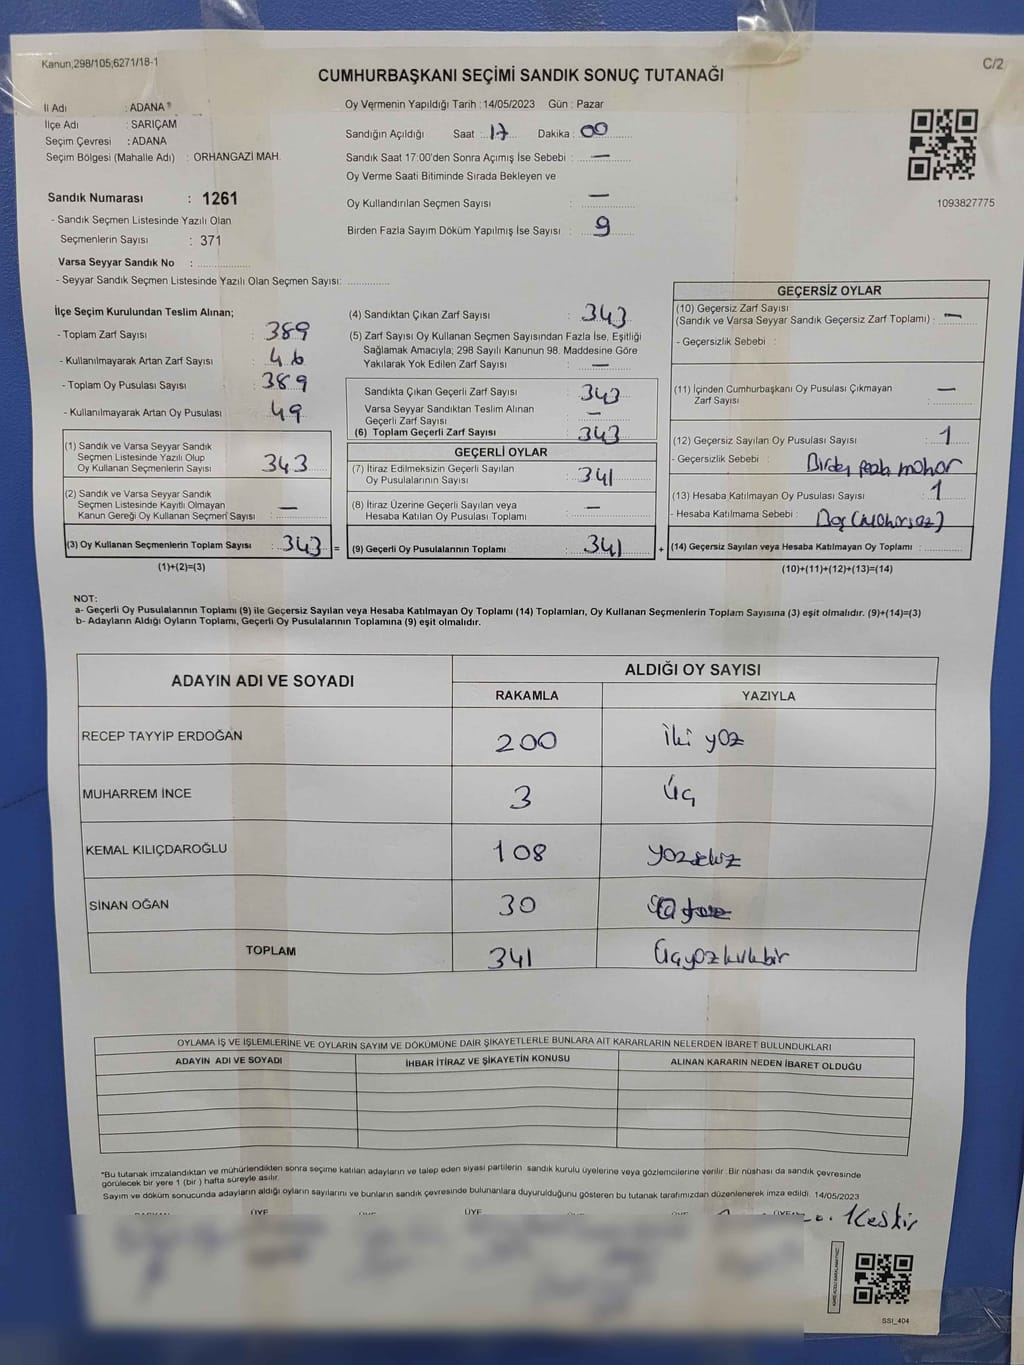 Kanun;298/105;6271/18-1
C/2
CUMHURBAŞKANI SEÇİMİ SANDIK SONUÇ TUTANAĞI
İl Adı : ADANA
İlçe Adı : SARIÇAM
Seçim Çevresi : ADANA
Seçim Bölgesi (Mahalle Adı) : ORHANGAZİ MAH.
Sandık Numarası : 1261
- Sandık Seçmen Listesinde Yazılı Olan
Seçmenlerin Sayısı : 371
Varsa Seyyar Sandık No :
- Seyyar Sandık Seçmen Listesinde Yazılı Olan Seçmen Sayısı:
Oy Vermenin Yapıldığı Tarih : 14/05/2023 Gün : Pazar
Sandığın Açıldığı Saat : 17 Dakika : 00
Sandık Saat 17:00'den Sonra Açımış İse Sebebi : —
Oy Verme Saati Bitiminde Sırada Bekleyen ve
Oy Kullandırılan Seçmen Sayısı : —
Birden Fazla Sayım Döküm Yapılmış İse Sayısı : 9
1093827775
İlçe Seçim Kurulundan Teslim Alınan;
- Toplam Zarf Sayısı : 389
- Kullanılmayarak Artan Zarf Sayısı : 46
- Toplam Oy Pusulası Sayısı : 389
- Kullanılmayarak Artan Oy Pusulası : 49
(1) Sandık ve Varsa Seyyar Sandık
Seçmen Listesinde Yazılı Olup
Oy Kullanan Seçmenlerin Sayısı : 343
(2) Sandık ve Varsa Seyyar Sandık
Seçmen Listesinde Kayıtlı Olmayan
Kanun Gereği Oy Kullanan Seçmen Sayısı : —
(3) Oy Kullanan Seçmenlerin Toplam Sayısı : 343 =
(1)+(2)=(3)
(4) Sandıktan Çıkan Zarf Sayısı : 343
(5) Zarf Sayısı Oy Kullanan Seçmen Sayısından Fazla İse, Eşitliği
Sağlamak Amacıyla; 298 Sayılı Kanunun 98. Maddesine Göre
Yakılarak Yok Edilen Zarf Sayısı : —
Sandıkta Çıkan Geçerli Zarf Sayısı : 343
Varsa Seyyar Sandıktan Teslim Alınan
Geçerli Zarf Sayısı : —
(6) Toplam Geçerli Zarf Sayısı : 343
GEÇERLİ OYLAR
(7) İtiraz Edilmeksizin Geçerli Sayılan
Oy Pusulalarının Sayısı : 341
(8) İtiraz Üzerine Geçerli Sayılan veya
Hesaba Katılan Oy Pusulası Toplamı : —
(9) Geçerli Oy Pusulalarının Toplamı : 341 +
GEÇERSİZ OYLAR
(10) Geçersiz Zarf Sayısı
(Sandık ve Varsa Seyyar Sandık Geçersiz Zarf Toplamı) : —
- Geçersizlik Sebebi :
(11) İçinden Cumhurbaşkanı Oy Pusulası Çıkmayan
Zarf Sayısı : —
(12) Geçersiz Sayılan Oy Pusulası Sayısı : 1
- Geçersizlik Sebebi : mühür
(13) Hesaba Katılmayan Oy Pusulası Sayısı : 1
- Hesaba Katılmama Sebebi : Boş (Mühürsüz)
(14) Geçersiz Sayılan veya Hesaba Katılmayan Oy Toplamı :
(10)+(11)+(12)+(13)=(14)
NOT:
a- Geçerli Oy Pusulalarının Toplamı (9) ile Geçersiz Sayılan veya Hesaba Katılmayan Oy Toplamı (14) Toplamları, Oy Kullanan Seçmenlerin Toplam Sayısına (3) eşit olmalıdır. (9)+(14)=(3)
b- Adayların Aldığı Oyların Toplamı, Geçerli Oy Pusulalarının Toplamına (9) eşit olmalıdır.
ADAYIN ADI VE SOYADI
ALDIĞI OY SAYISI
RAKAMLA YAZIYLA
RECEP TAYYİP ERDOĞAN 200 İki yüz
MUHARREM İNCE 3 Üç
KEMAL KILIÇDAROĞLU 108 yüzsekiz
SİNAN OĞAN 30
TOPLAM 341 Üçyüzkırkbir
OYLAMA İŞ VE İŞLEMLERİNE VE OYLARIN SAYIM VE DÖKÜMÜNE DAİR ŞİKAYETLERLE BUNLARA AİT KARARLARIN NELERDEN İBARET BULUNDUKLARI
ADAYIN ADI VE SOYADI İHBAR İTİRAZ VE ŞİKAYETİN KONUSU ALINAN KARARIN NEDEN İBARET OLDUĞU
"Bu tutanak imzalandıktan ve mühürlendikten sonra seçime katılan adayların ve talep eden siyasi partilerin sandık kurulu üyelerine veya gözlemcilerine verilir. Bir nüshası da sandık çevresinde
görülecek bir yere 1 (bir) hafta süreyle asılır.
Sayım ve döküm sonucunda adayların aldığı oyların sayılarını ve bunların sandık çevresinde bulunanlara duyurulduğunu gösteren bu tutanak tarafımızdan düzenlenerek imza edildi. 14/05/2023
ÜYE ÜYE
SSI_404